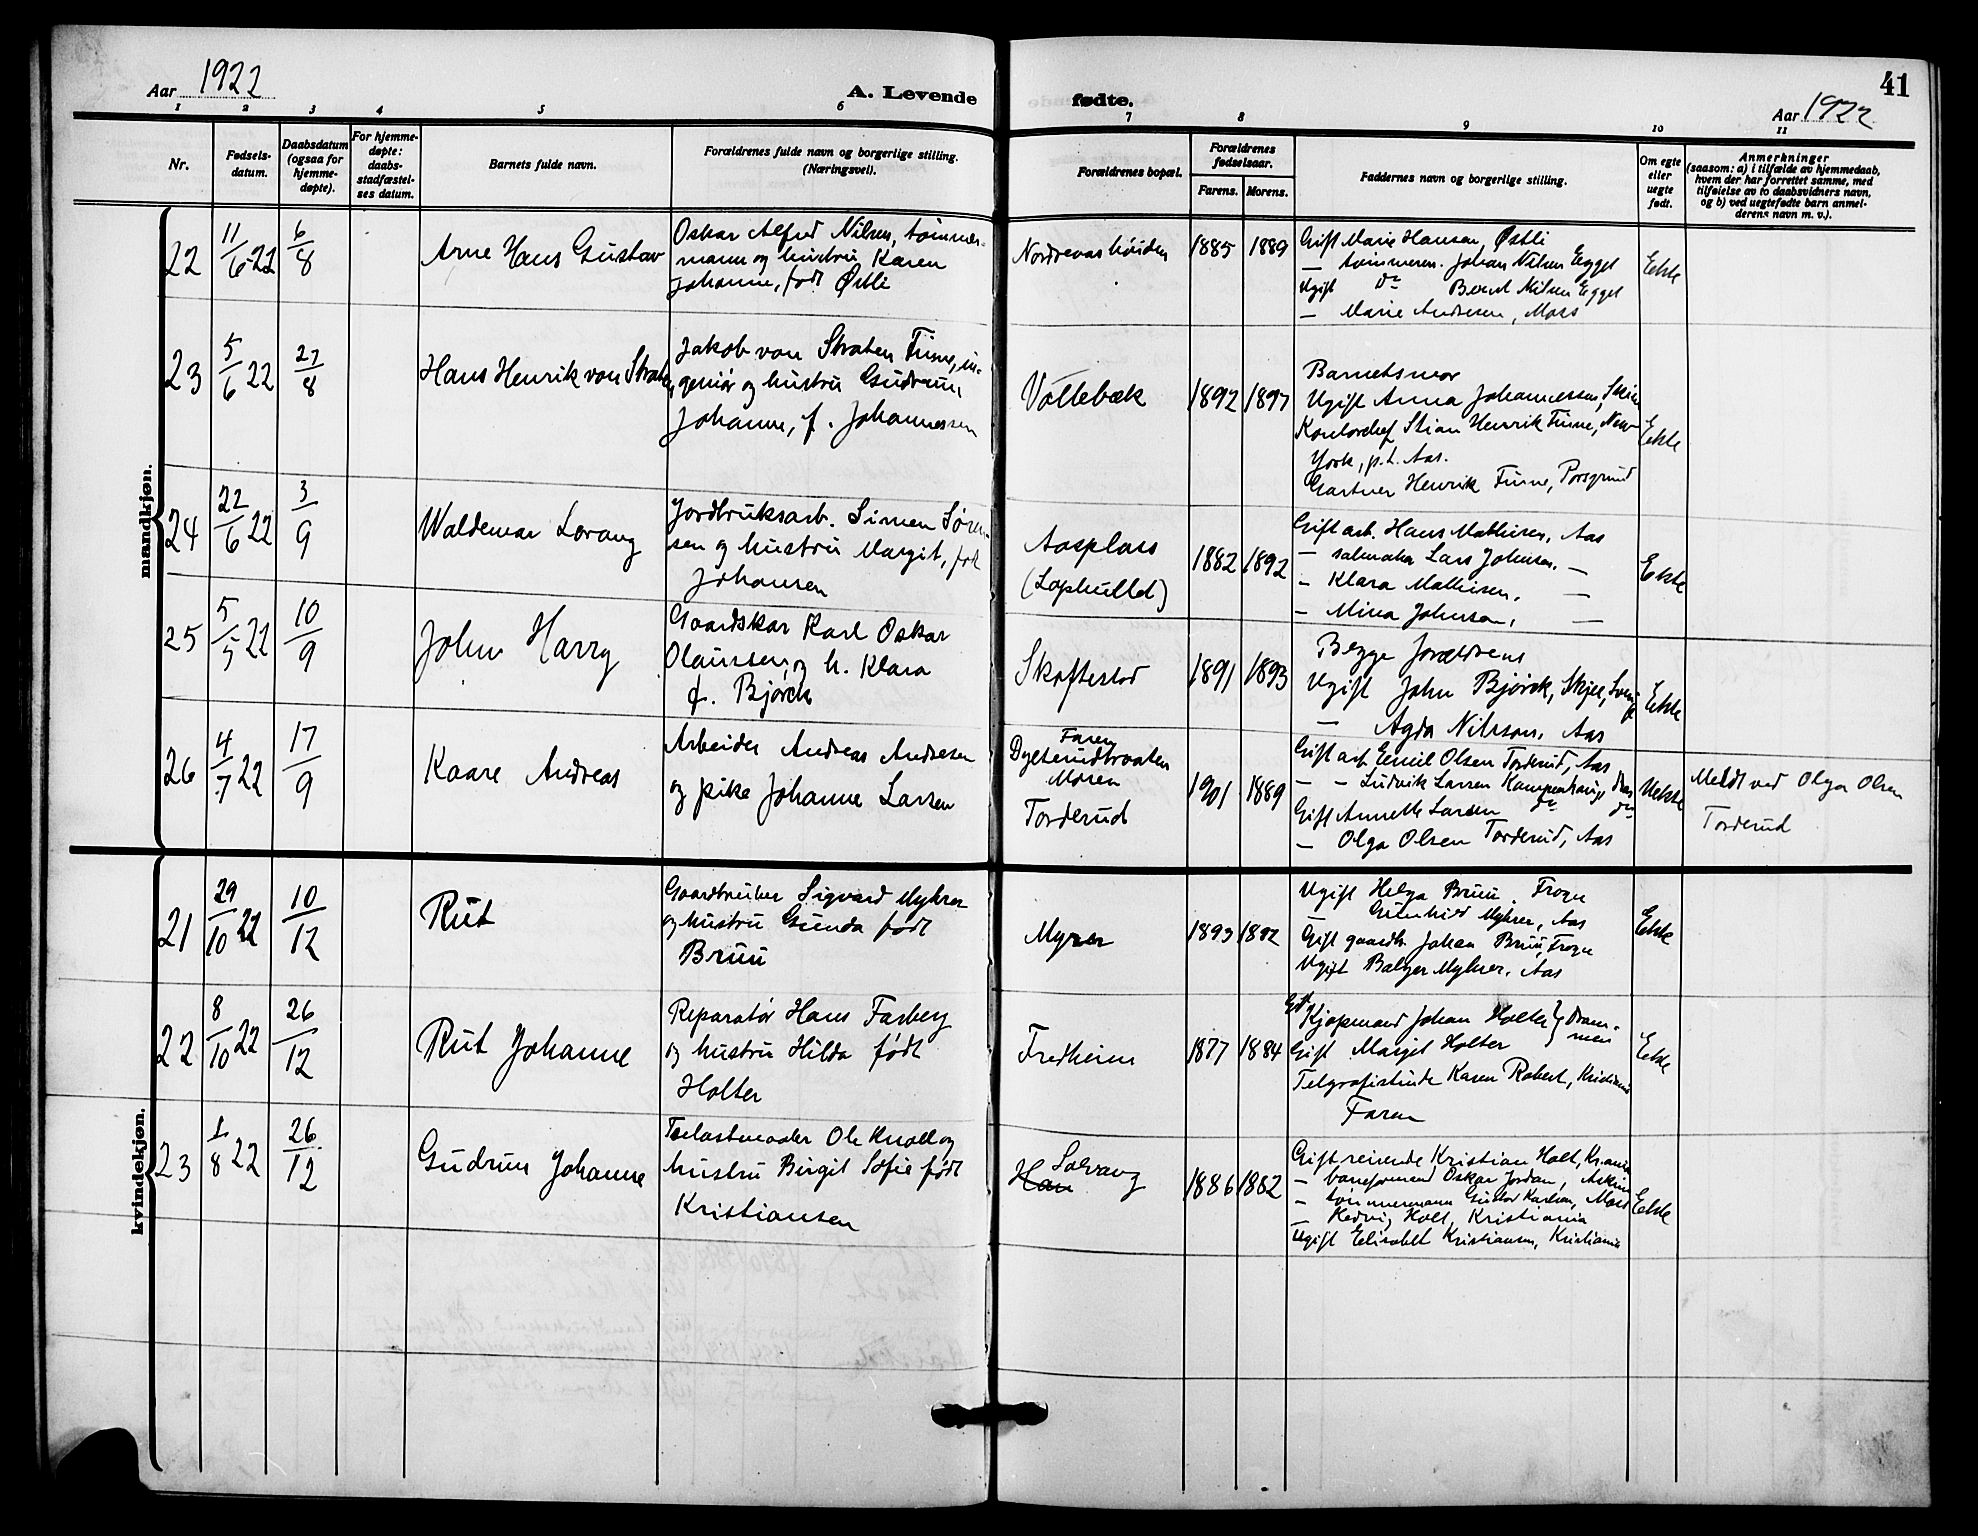 Aar 1922
A. Levende
fødte.
41
Aar 1922
1 2 3 4 5 6 7 8 9 10 11
Nr.
Fødsels-
datum.
Daabsdatum
(ogsaa for
hjemme-
døpte).
For hjemme-
døpte:
daabs-
stadfæstel-
ses datum.
Barnets fulde navn.
Forældrenes fulde navn og borgerlige stilling.
(Næringsvei).
Forældrenes bopæl.
Forældrenes
fødselsaar.
Farens. Morens.
Faddernes navn og borgerlige stilling.
Om egte
eller
uegte
født.
Anmerkninger
(saasom: a) i tilfælde av hjemmedaab,
hvem der har forrettet samme, med
tilføielse av to daabsvidners navn,
og b) ved uegtefødte barn anmel-
derens navn m. v.).
mandkjøn.
22 11/6 22 6/8 Arne Hans Gustav
Oskar Alfred Nilsen, tømmer-
mann og hustru Karen
Johanne, født Østli
1885 1889
Gift Marie Hansen, Østli
— tømmerm. Johan Nilsen Egget
Ugift do Bernt Nilsen Egget
— Marie Andresen, Moss
Ekte
23 5/6 22 27/8 Hans Henrik von Straten
Jakob von Straten Finne, in-
geniør og hustru Gudrun
Johanne, f. Johannessen
Vollebæk 1892 1897
Barnets mor
Ugift Anna Johannessen, Skien
Kontorchef Stian Henrik Finne, New-
York, p.t. Aas.
Gartner Henrik Finne, Porsgrund
Ekte
24 22/6 22 3/9 Waldemar Lorang
Jordbruksarb. Simen Søren-
sen og hustru Margit, født
Johansen
Aasplass
1882 1892
Gift arb. Hans Mathisen, Aas
— salmaker Lars Johnsen, —
— Klara Mathisen, —
— Mina Johnson, —
Ekte
25 5/5 22 10/9 John Harry
Gaardskar Karl Oskar
Olaussen, og h. Klara
f. Bjørck
Skoftestad 1891 1893
Begge forældrene
Ugift John Bjørck, Skjee,
— Agda Nilsson, Aas
Ekte
26 4/7 22 17/9 Kaare Andreas
Arbeider Andreas Andresen
og pike Johanne Larsen
Faren
Moren
Torderud
1901 1889
Gift arb. Emil Olsen Torderud, Aas
— — Ludvik Larsen
Gift Annette Larsen do do
— Olga Olsen Torderud, Aas
Uekte
Meldt ved Olga Olsen
Torderud
kvindekjøn.
21 29/10 22 10/12 Rut
Gaardbruker Sigvard Myhrer
og hustru Gunda født
Bruu
Myrer 1893 1892
Ugift Helga Bruu, Frogn
— Gunhild Myhrer, Aas
Gift gaardb. Johan Bruu, Frogn
Ugift Balger Myhrer, Aas
Ekte
22 8/10 22 26/12 Rut Johanne
Reparatør Hans Farberg
og hustru Hilda født
Holter
Fredheim 1877 1884
Gift Kjøpmand Johan Holter } Dram-
Gift Margit Holter } men
Telgrafistinde Karen Robert, Kristiania
Faren
Ekte
23 1/8 22 26/12 Gudrun Johanne
Tælastmaaler Ole Knoll og
hustru Birgit Sofie født
Kristiansen
Solvang
1886 1882
Gift reisende Kristian Holt, Kr.ania
— baneformand Oskar Jordan, Askim
— tømmermann Gustav Karlsen, Moss
— Hedvig Holt, Kristiania
Ugift Elisabet Kristiansen, Kristiania
Ekte